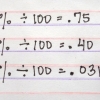 % ÷ 100 = .75
% ÷ 100 = .40
% ÷ 100 = .03